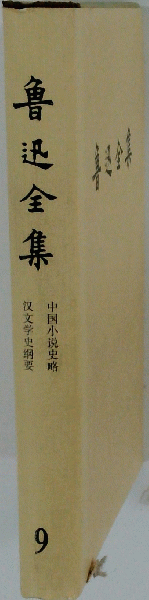 鲁迅全集
中国小说史略
汉文学史纲要
9
鲁迅全集